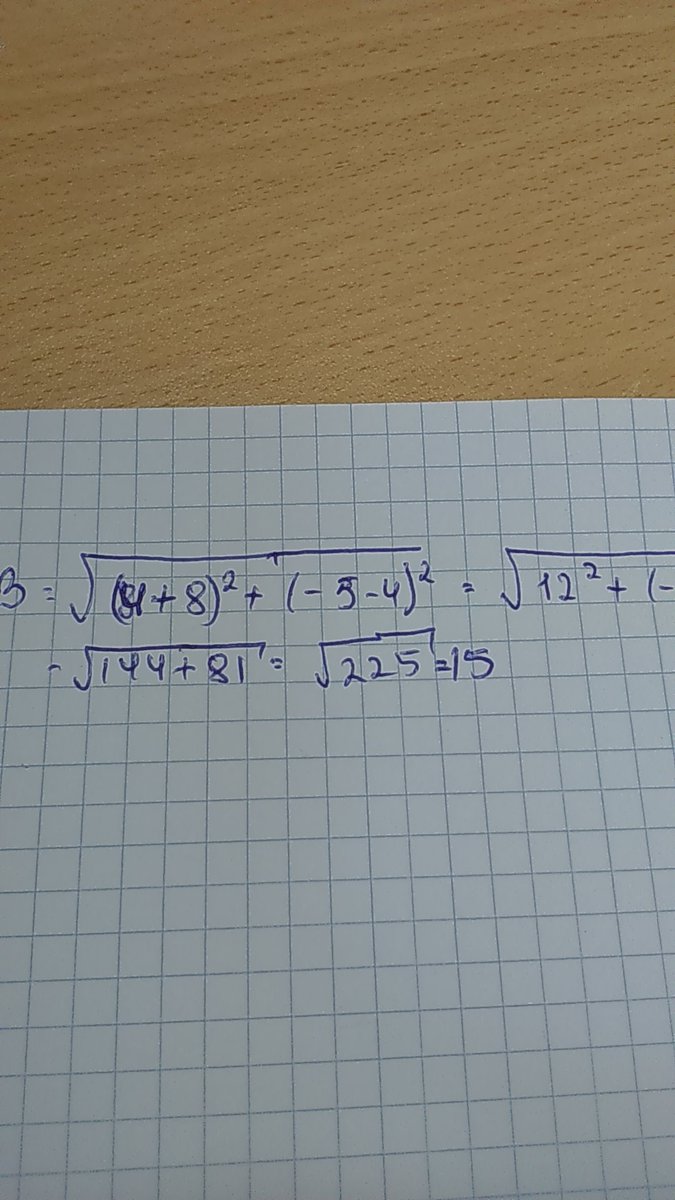 B = √(4+8)² + (-5-4)² = √12² + (-
- √144+81 = √225 = 15